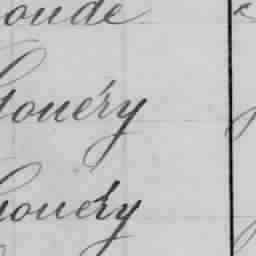 oude
Gouéry
Gouéry